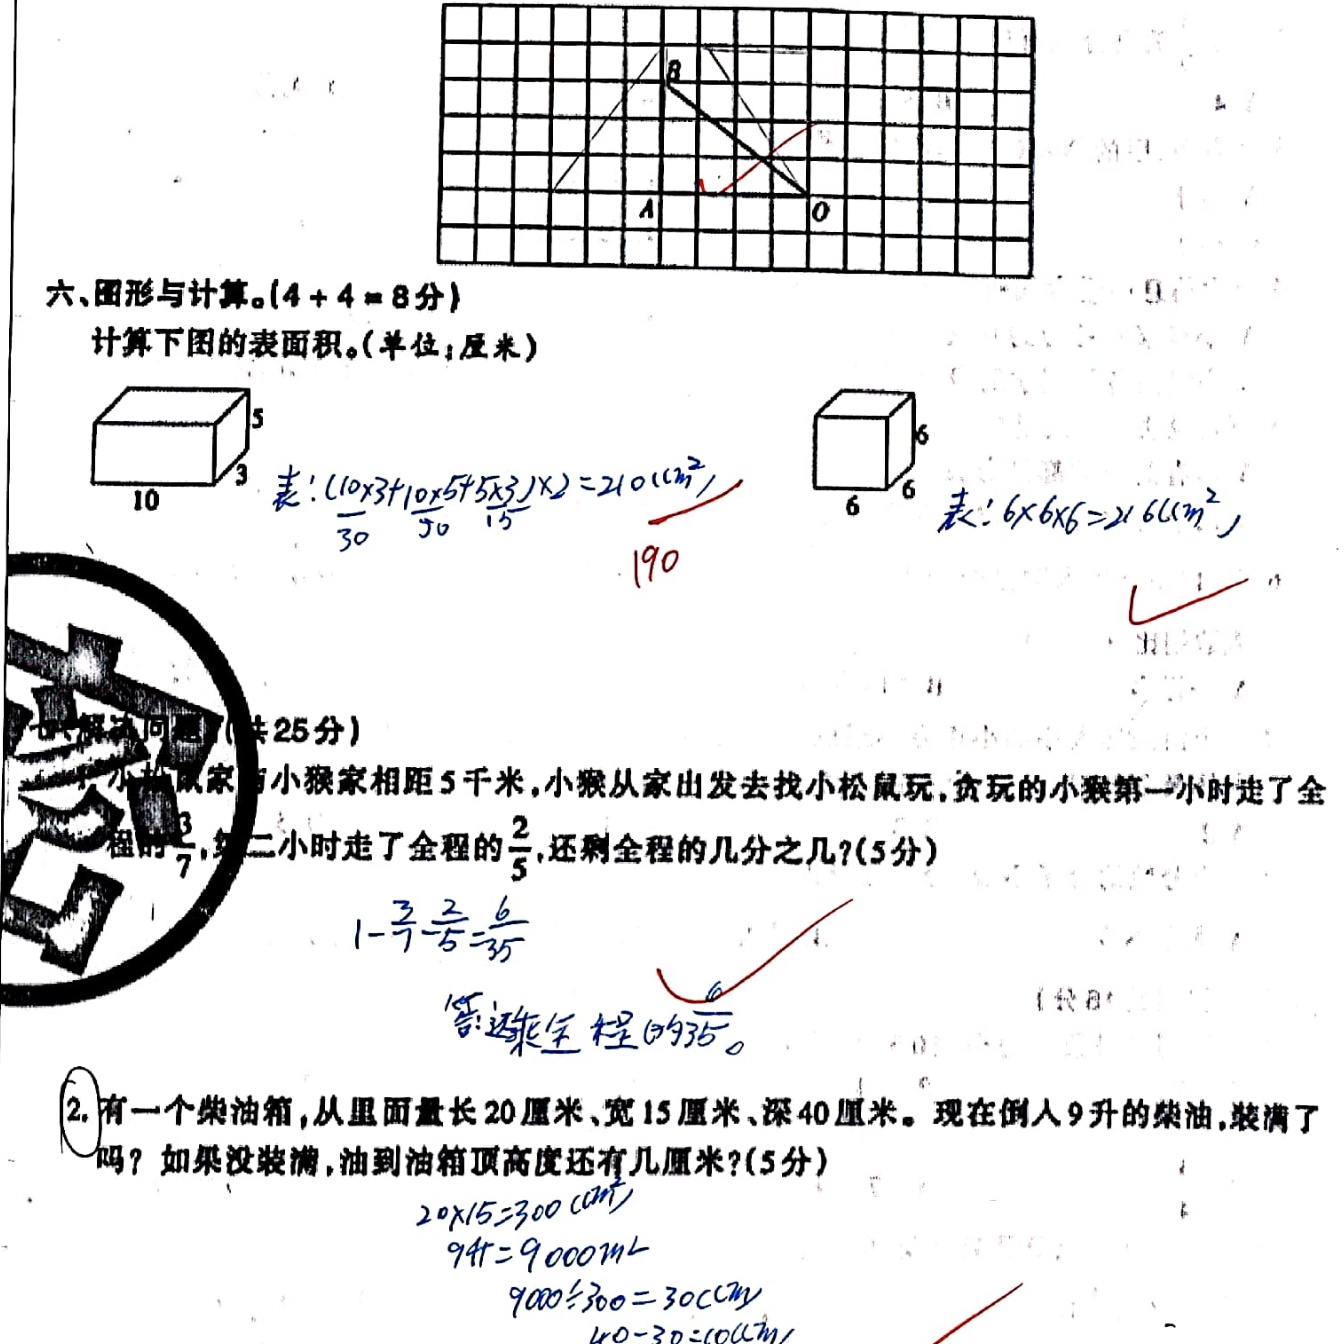 B
A
O
六、图形与计算。(4+4=8分)
计算下图的表面积。(单位:厘米)
5
3
10
表:(10×3+10×5+5×3)×2=210(cm²)
30 50 15
190
6
6
6
表:6×6×6=216(cm²)
解决问题(共25分)
小松鼠家与小猴家相距5千米,小猴从家出发去找小松鼠玩,贪玩的小猴第一小时走了全
程的3/7,第二小时走了全程的2/5,还剩全程的几分之几?(5分)
1-3/7-2/5=6/35
答:还乘全程的6/35。
2.有一个柴油箱,从里面量长20厘米、宽15厘米、深40厘米。现在倒入9升的柴油,装满了
吗?如果没装满,油到油箱顶高度还有几厘米?(5分)
20×15=300(cm²)
9升=9000mL
9000÷300=30(cm)
40-30=10(cm)